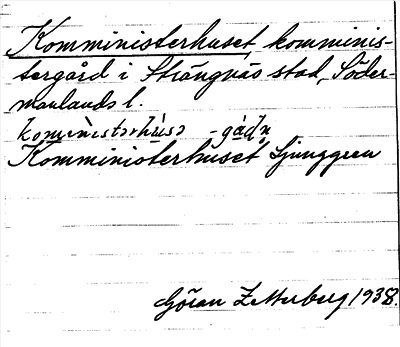 Komministerhuset komminis-
tergård i Strängnäs stad, Söder-
manlands l.
komìnistərhùsə -gàḍṇ
Komministerhuset Ljunggren
Göran Zetterberg 1938.